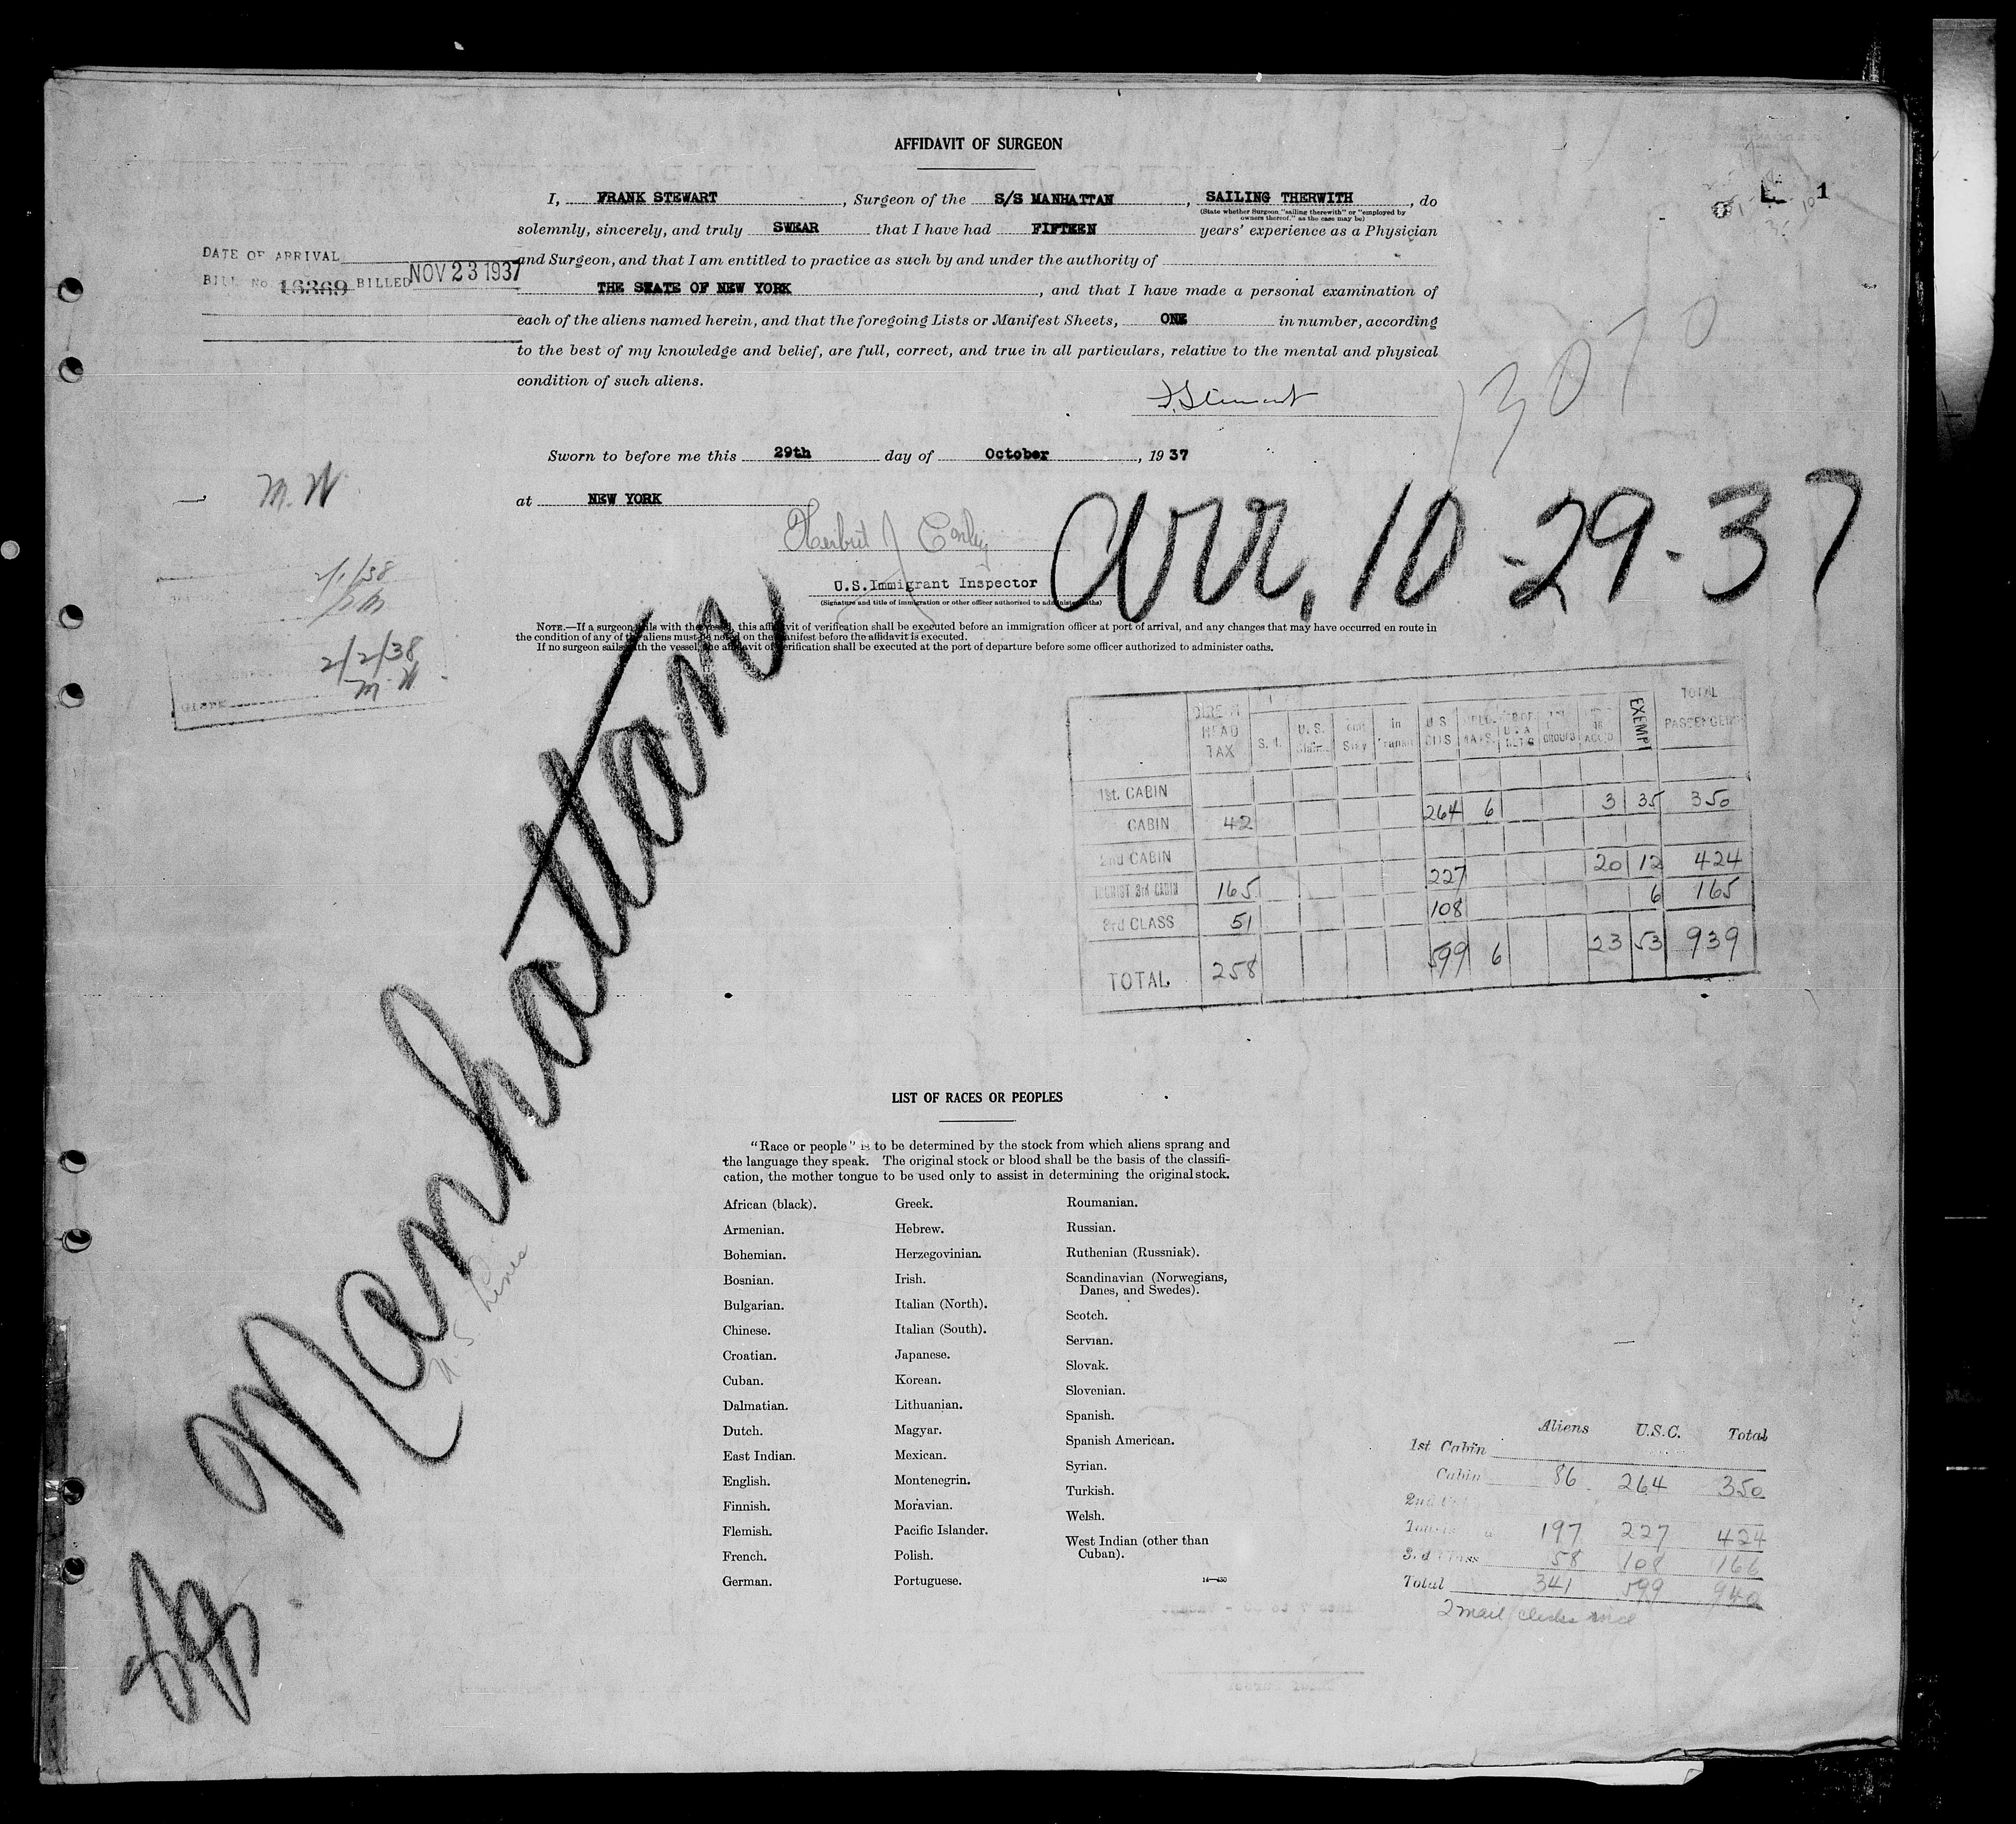 AFFIDAVIT OF SURGEON
1
I, FRANK STEWART, Surgeon of the S/S MANHATTAN, SAILING THERWITH, do
(State whether Surgeon "sailing therewith" or "employed by
owners thereof," as the case may be)
solemnly, sincerely, and truly SWEAR that I have had FIFTEEN years' experience as a Physician
and Surgeon, and that I am entitled to practice as such by and under the authority of
THE STATE OF NEW YORK, and that I have made a personal examination of
each of the aliens named herein, and that the foregoing Lists or Manifest Sheets, ONE in number, according
to the best of my knowledge and belief, are full, correct, and true in all particulars, relative to the mental and physical
condition of such aliens.
DATE OF ARRIVAL
BILL No. 16369 BILLED NOV 23 1937
F. Stewart
13070
Sworn to before me this 29th day of October, 1937
at NEW YORK
M. W
Arr. 10-29-37
U.S. Immigrant Inspector
(Signature and title of immigration or other officer authorized to administer oaths)
NOTE.—If a surgeon sails with the vessel, this affidavit of verification shall be executed before an immigration officer at port of arrival, and any changes that may have occurred en route in
the condition of any of the aliens must be noted on the manifest before the affidavit is executed.
If no surgeon sails with the vessel, the affidavit of verification shall be executed at the port of departure before some officer authorized to administer oaths.
2/1/38
2/2/38
M. W.
Manhattan
U S Lines
HEAD TAX S.I. U.S. In Transit U.S. CITS EXEMPT TOTAL PASSENGERS
1st. CABIN
CABIN 42 264 6 3 35 350
2nd CABIN
TOURIST 3rd CABIN 165 227 20 12 424
3rd CLASS 51 108 6 165
TOTAL 258 599 6 23 53 939
LIST OF RACES OR PEOPLES
"Race or people" is to be determined by the stock from which aliens sprang and
the language they speak. The original stock or blood shall be the basis of the classifi-
cation, the mother tongue to be used only to assist in determining the original stock.
African (black).
Armenian.
Bohemian.
Bosnian.
Bulgarian.
Chinese.
Croatian.
Cuban.
Dalmatian.
Dutch.
East Indian.
English.
Finnish.
Flemish.
French.
German.
Greek.
Hebrew.
Herzegovinian.
Irish.
Italian (North).
Italian (South).
Japanese.
Korean.
Lithuanian.
Magyar.
Mexican.
Montenegrin.
Moravian.
Pacific Islander.
Polish.
Portuguese.
Roumanian.
Russian.
Ruthenian (Russniak).
Scandinavian (Norwegians,
Danes, and Swedes).
Scotch.
Servian.
Slovak.
Slovenian.
Spanish.
Spanish American.
Syrian.
Turkish.
Welsh.
West Indian (other than
Cuban).
14—430
Aliens U.S.C. Total
1st Cabin
Cabin 86 264 350
2nd
197 227 424
3rd Class 58 108 166
Total 341 599 940
2 mail clerks incl